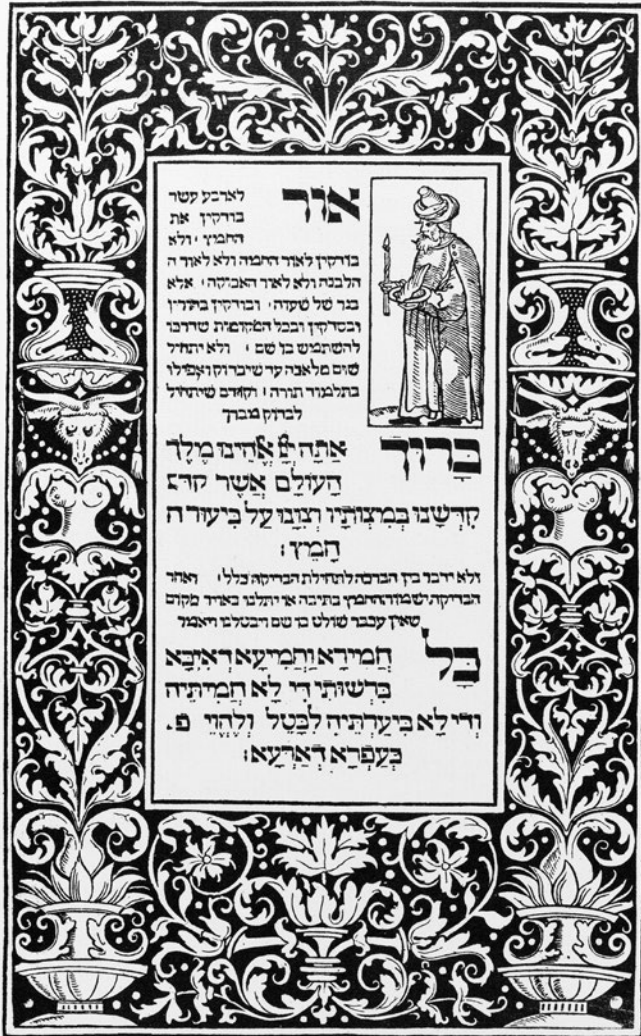 אור לארבע עשר
בודקין את
החמץ ׳ ולא
בודקין לאור החמה ולא לאור ה
הלבנה ולא לאור האבוקה ׳ אלא
בנר של שעוה ׳ ובודקין בחורין
ובסדקין ובכל המקומות שדרכו
להשתמש בו שם ׳ ולא יתחיל
שום מלאכה עד שיבדוק ואפילו
בתלמוד תורה ׳ וקודם שיתחיל
לבדוק מברך
בָּרוּךְ אַתָּה יְיָ אֱלֹהֵינוּ מֶלֶךְ
הָעוֹלָם אֲשֶׁר קד׳
קִדְּשָׁנוּ בְּמִצְוֹתָיו וְצִוָּנוּ עַל בִּיעוּר ה
חָמֵץ :
ולא ידבר בין הברכה לתחילת הבדיקה כלל ׳ ואחר
הבדיקה ישמור החמץ בתיבה או יתלנו באויר מקום
שאין עכבר שולט בו שם ויבטלנו ויאמר
כָּל חֲמִירָא וַחֲמִיעָא דְּאִיכָּא
בִּרְשׁוּתִי דִּי לָא חֲמִיתֵּיהּ
וְדִי לָא בִּיעַרְתֵּיהּ לִבָּטֵל וְלֶהֱוֵי פ.
כְּעַפְרָא דְאַרְעָא :